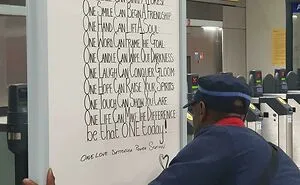 One Smile Can Begin A Friendship.
One Hand Can Lift A Soul
One Word Can Frame The Goal.
One Candle Can Wipe Out Darkness
One Laugh Can Conquer Gloom
One Hope Can Raise Your Spirits
One Touch Can Show You Care
One Life Can Make The Difference
be that ONE today!
One Love Battersea Power Station